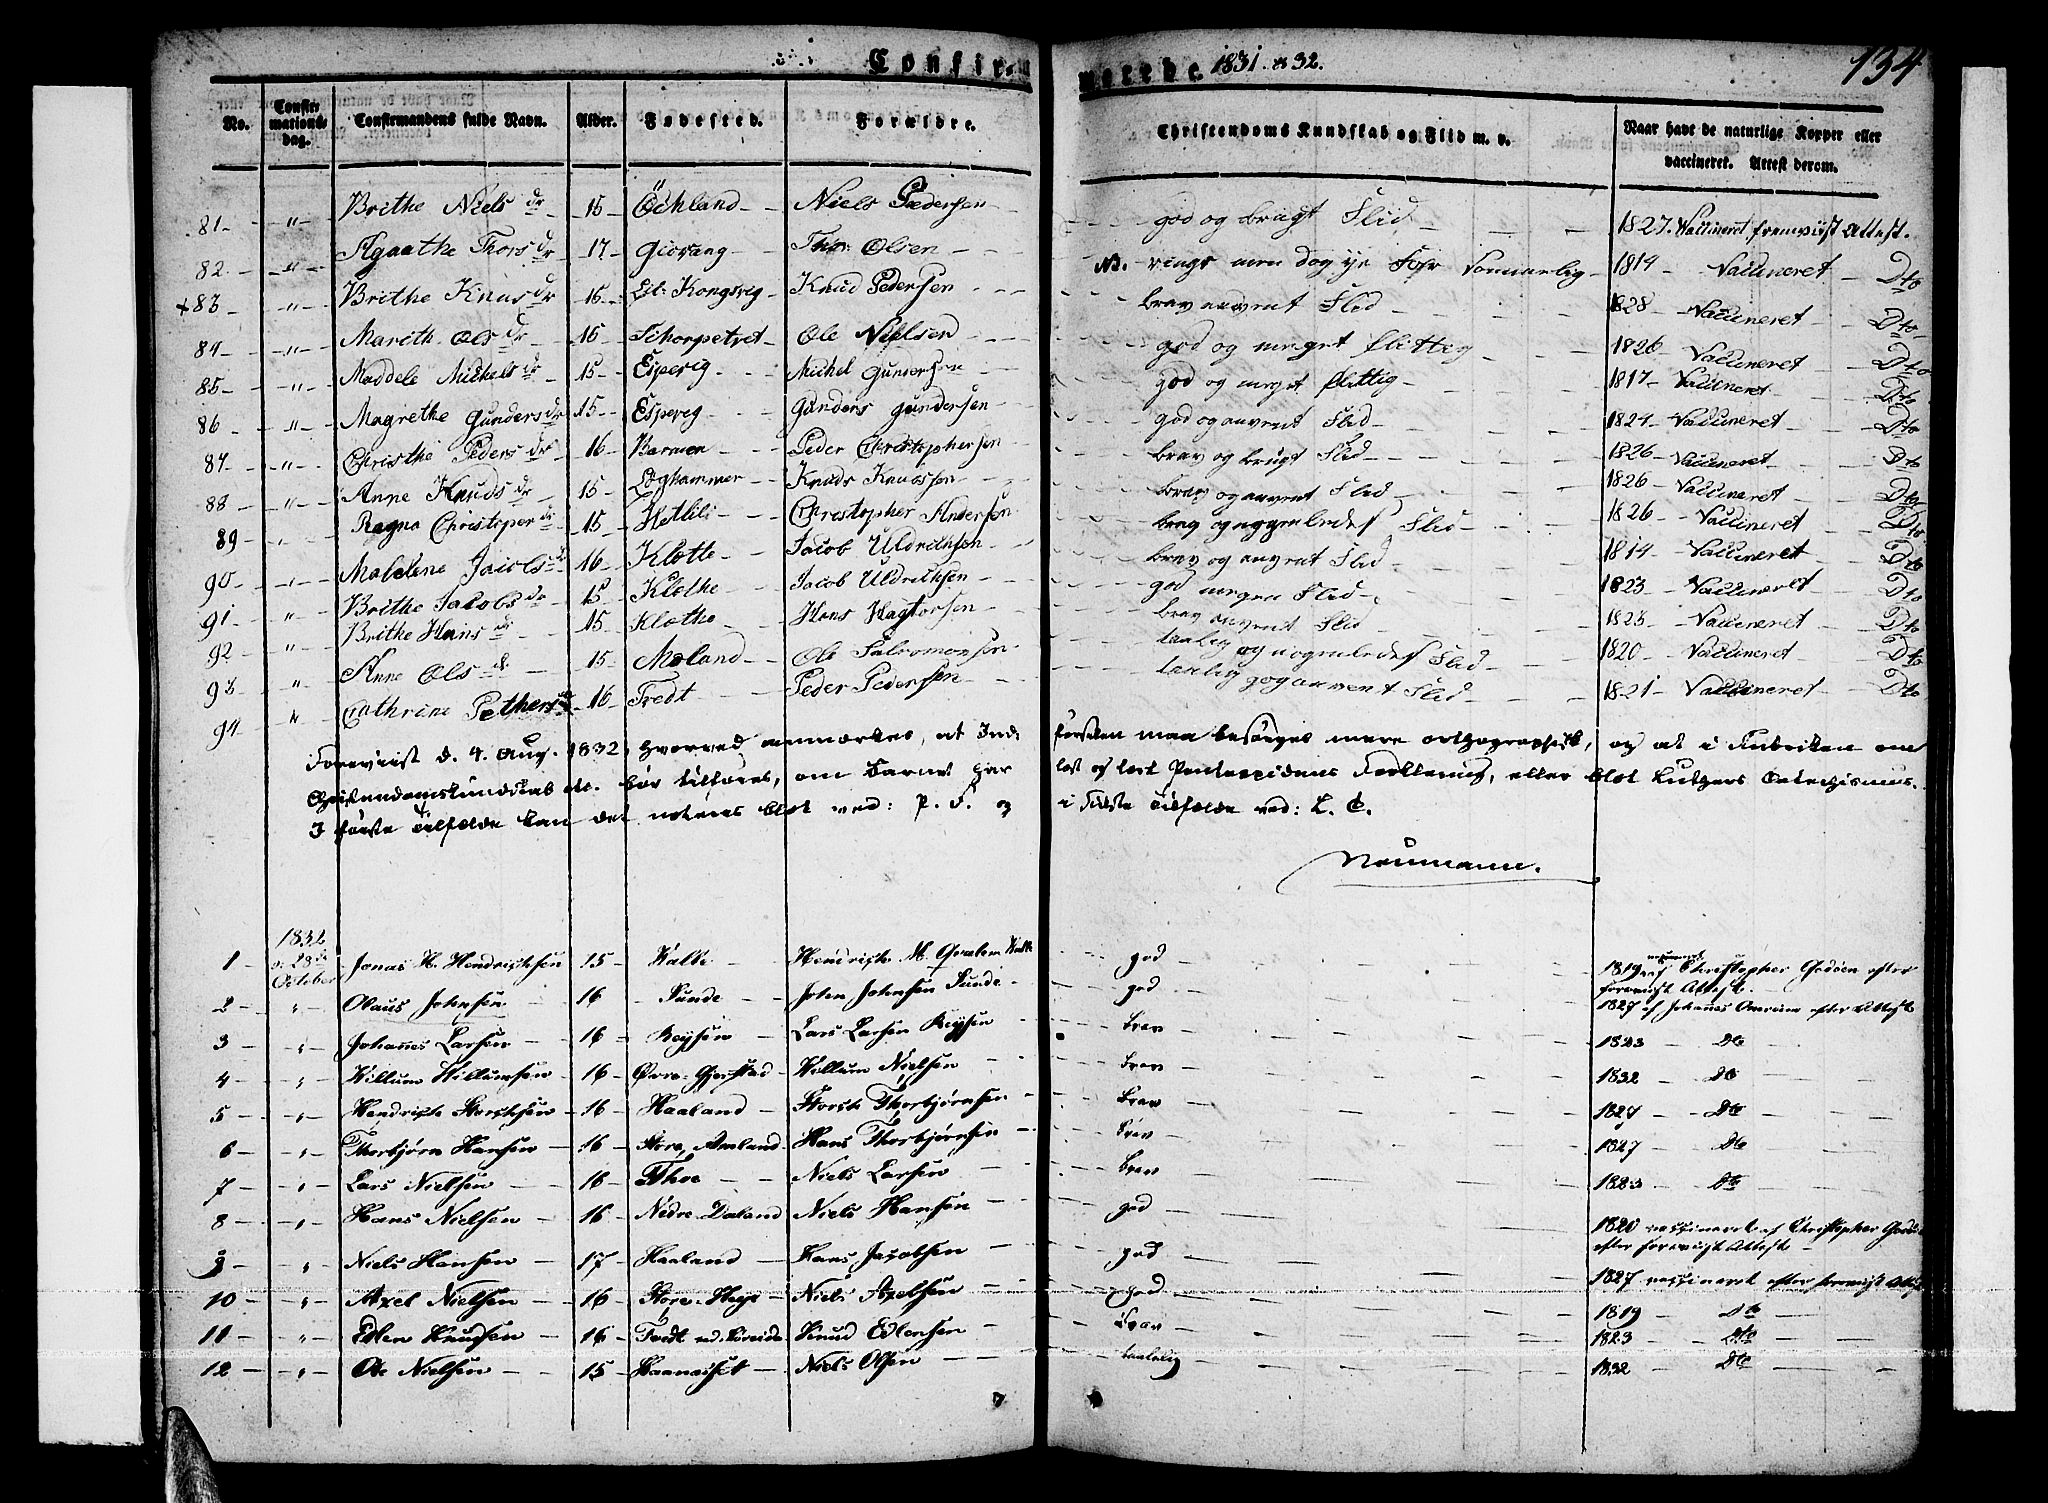 Confirmerede 1831 & 32.
134
No. Confirmationsdag. Confirmandens fulde Navn. Alder. Fødested. Forældre. Christendoms Kundskab og Flid m. v. Naar havt de naturlige Kopper eller vaccineret. Attest derom.
81 " Brithe Niels dr 15 Öckland Niels Pedersen god og brugt Flid 1827. Vaccineret fremviist Attest.
82 " Agaathe Thors dr 17 Giovang Thor Olsen NB. 1814 Vaccineret Dto
+83 " Brithe Knus dr 16 Kongsvig Knud Pedersen brav anvent Flid 1828 Vaccineret Dto
84 " Marith Ols dr 15 Ole Nielsen god og meget flittig 1826 Vaccineret Dto
85 " Maddele Michels dr 15 Espevig Michel Gundersen god og meget flittig 1817 Vaccineret Dto
86 " Magrethe Gunders dr 15 Espevig Gunders Gundersen god og anvent Flid 1824 Vaccineret Dto
87 " Christhe Peders dr 16 Barmen Peder Christophersen brav og brugt Flid 1826 Vaccineret Dto
88 " Anne Knuds dr 15 Knuds Knudssen brav og anvent Flid 1826 Vaccineret Dto
89 " Ragna Christoper dr 15 Hetlili Christopher Andersen Flid 1826 Vaccineret Dto
90 " Malelene Jacobs dr 16 Klotte Jacob Uldriksen brav og anvent Flid 1814 Vaccineret Dto
91 " Brithe Jacobs dr 15 Klothe Jacob Uldriksen god megen Flid 1823 Vaccineret Dto
92 " Brithe Hans dr 15 Klothe Hans Hagtorsen brav anvent Flid 1823 Vaccineret Dto
93 " Anne Ols dr 15 Moland Ole Salromonsen Flid 1820 Vaccineret Dto
94 " Cathrine Pethers dr 16 Tredt Peder Pedersen og anvent Flid 1821 Vaccineret Dto
Foreviist d. 4. Aug. 1832, hvorved anmærkes, at Indførselen maa besørges mere orthographisk, og at i Rubriken om
Christendomskundskab etc. bør tilføies, om Barnet har læst og lært Pontoppidans Forklaring, eller blot Luthers Catechismus.
I første Tilfælde kan det noteres blot ved: P. F. og i sidste Tilfælde ved: L. C.
Neumann.
1832
1 d. 28de October Jonas M. Hendrichsen 15 Valle Hendrich M. Valle god 1819 af Christopher Godøen efter foreviist Attest.
2 " Olaus Johnsen 16 Sunde John Johnsen Sunde god 1827 af Johannes efter Attest
3 " Johannes Larsen 16 Røysen Lars Larsen Røysen brav 1823 Dto
4 " Willum Willumsen 16 Øvre Gjerstad Willum Nielsen brav 1832 Dto
5 " Hendrich Storchsen 16 Haaland Storch Thorbjørnsen brav 1827 Dto
6 " Thorbjørn Hansen 16 Store Amland Hans Thorbjørnsen brav 1827 Dto
7 " Lars Nielsen 16 Thoe Niels Larsen brav 1823 Dto
8 " Hans Nielsen 16 Nedre Daland Niels Hansen god 1820 vaccineret af Christopher efter foreviist Attest
9 " Niels Hansen 17 Haaland Hans Jacobsen god 1827 vaccineret efter foreviist Attest
10 " Axel Nielsen 16 Store Niels Axelsen god 1819 Dto
11 " Edlen Knudsen 16 Tvedt Knud Edlensen brav 1823 Dto
12 " Ole Nielsen 15 Niels Olsen taalelig 1832 Dto